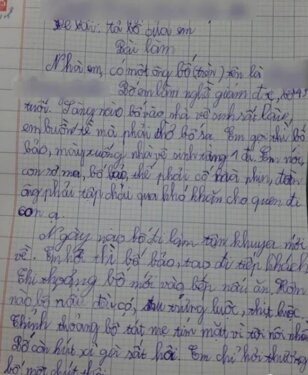 Đề bài: tả bố của em
Bài làm
Nhà em, có một ông bố (tiền) tên là
Bố em làm nghề giám đốc,
tuổi. Sáng nào bố vào nhà vệ sinh rất lâu,
em buồn tè mà phải chờ bố ra. Em gọi thì bố
bảo, mày xuống nhà vệ sinh tầng 1 đi. Em nói
con sợ ma, bố bảo, thế phải cố mà nhịn, đàn
ông phải tập chịu qua khó khăn cho quen đi
con ạ.
Ngày nào bố đi làm tối khuya mới
về. Em hỏi thì bố bảo, tao đi tiếp khách
Thi thoảng bố mới vào bếp nấu ăn. Hôm
nào bố nấu chỉ có, trứng luộc, thịt luộc.
Thỉnh thoảng bố tát mẹ tím mặt vì tội nói nhiều
Bố còn hút xì gà rất hôi. Em chỉ hơi thương
bố một chút thôi